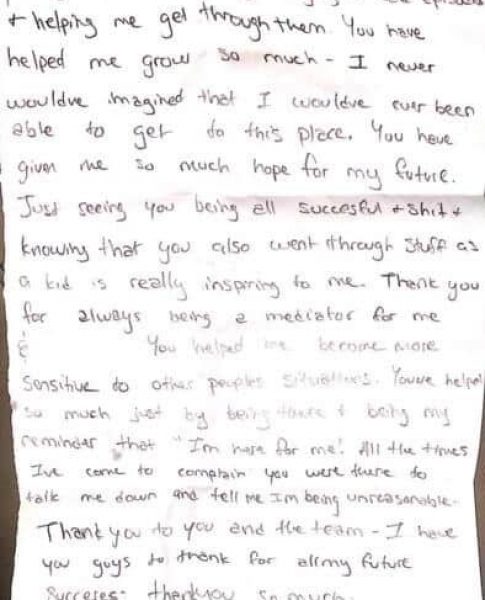 episodes
+ helping me get through them. You have
helped me grow so much - I never
wouldve imagined that I wouldve ever been
able to get to this place. You have
given me so much hope for my future.
Just seeing you being all succesful + shit +
knowing that you also went through stuff as
a kid is really inspiring to me. Thank you
for always being a mediator for me
& You helped me become more
sensitive to other peoples situations. Youve helped
so much just by being there + being my
reminder that "I'm here for me". All the times
Ive come to complain you were there to
talk me down and tell me Im being unreasonable.
Thank you to you and the team - I have
you guys to thank for all my future
succeses. thankyou so much.